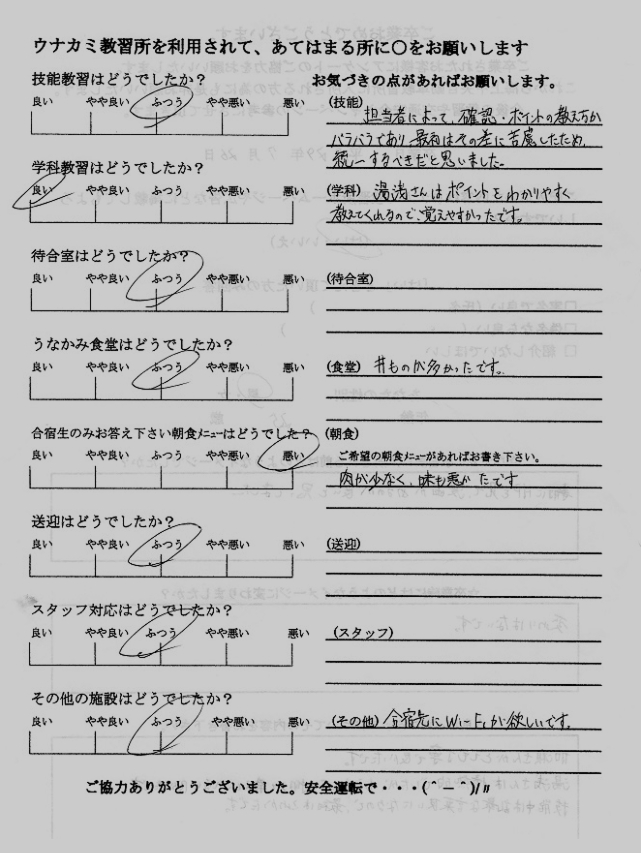 ウナカミ教習所を利用されて、あてはまる所に〇をお願いします
技能教習はどうでしたか?
お気づきの点があればお願いします。
良い やや良い ふつう やや悪い 悪い
(技能) 担当者によって、確認・ポイントの教え方が
バラバラであり、最初はその差に苦慮したため、
統一するべきだと思いました。
学科教習はどうでしたか?
良い やや良い ふつう やや悪い 悪い
(学科) 湯浅さんはポイントをわかりやすく
教えてくれるので、覚えやすかったです。
待合室はどうでしたか?
良い やや良い ふつう やや悪い 悪い
(待合室)
うなかみ食堂はどうでしたか?
良い やや良い ふつう やや悪い 悪い
(食堂) 丼ものが多かったです。
合宿生のみお答え下さい朝食メニューはどうでした?
(朝食)
良い やや良い ふつう やや悪い 悪い
ご希望の朝食メニューがあればお書き下さい。
肉が少なく、味も悪かったです
送迎はどうでしたか?
良い やや良い ふつう やや悪い 悪い
(送迎)
スタッフ対応はどうでしたか?
良い やや良い ふつう やや悪い 悪い
(スタッフ)
その他の施設はどうでしたか?
良い やや良い ふつう やや悪い 悪い
(その他) 合宿先にWi-Fiが欲しいです。
ご協力ありがとうございました。安全運転で・・・(^-^)/〃